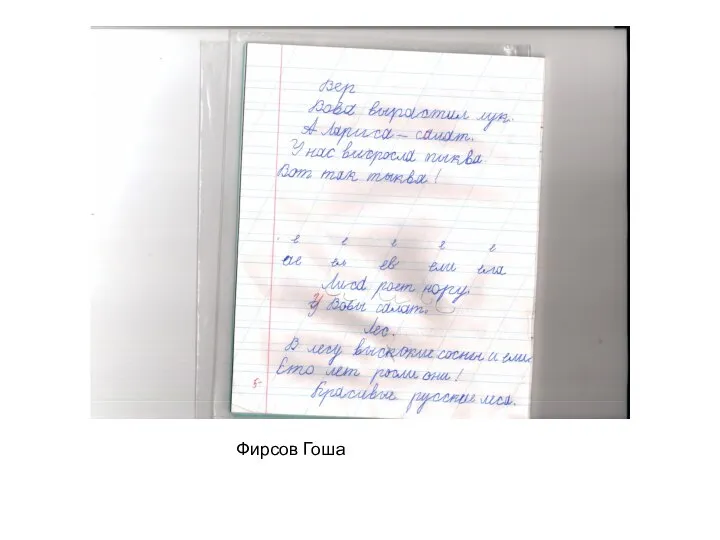 Вер
Вова вырастил лук.
А Лариса – салат.
У нас виросла тиква.
Вот так тыква!
е е е е е
ос ел ев ели ела
Лиса роет нору.
У Вовы салат.
Лес.
В лесу выскокие сосны и ели.
Сто лет росли они!
Красивые русские леса.
5-
Фирсов Гоша